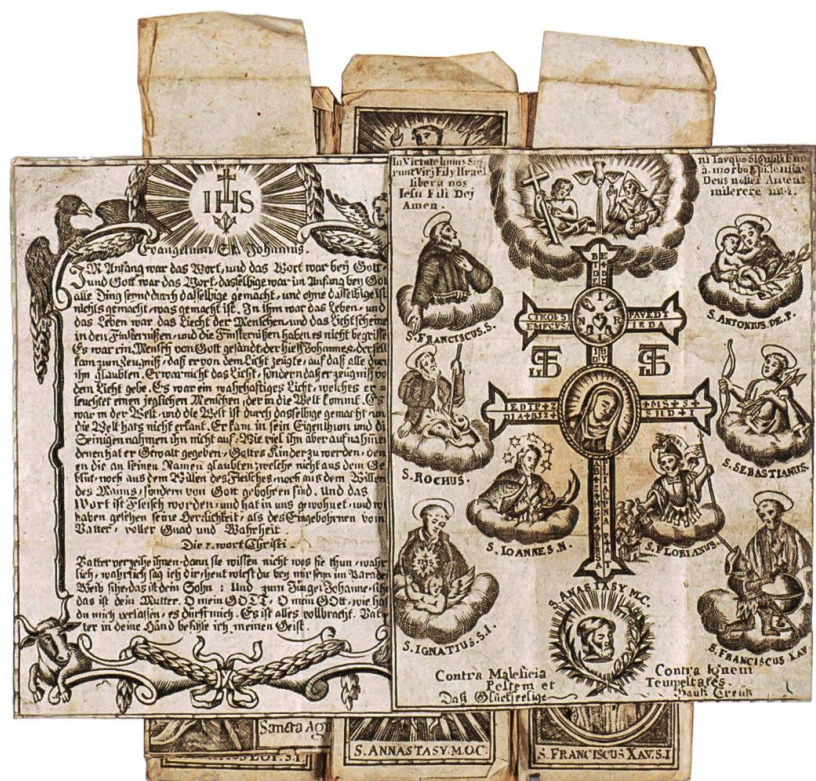 IHS
Evangelium St. Johannis.
IM Anfang war das Wort, und das Wort war bey Gott
und Gott war das Wort, dasselbige war im Anfang bey Got
alle Ding seynd durch dasselbige gemacht, und ohne dasselbige ist
nichts gemacht, was gemacht ist. In ihm war das Leben, und
das Leben war das Liecht der Menschen, und das Licht scheinet
in den Finsternüßen, und die Finsternüßen haben es nicht begriffen
Es war ein Mensch von Gott gesandt, der hieß Johannes, derselb
kam zum Zeugnuß, daß er von dem Licht zeugte, auf daß alle durch
ihn glaubten. Er war nicht das Licht, sondern daß er zeugnuß von
dem Licht gebe. Es war ein wahrhaftiges Licht, welches er=
leuchtet einen jeglichen Menschen, der in die Welt kommt. Es
war in der Welt, und die Welt ist durch dasselbige gemacht, und
die Welt hats nicht erkant. Er kam in sein Eigenthum und die
Seinigen nahmen ihn nicht auf. Wie viel ihn aber aufnahmen
denen hat er Gewalt gegeben, Gottes Kinder zu werden, den
en die an seinen Namen glaubten, welche nicht aus dem Ge
blüt, noch aus dem Willen des Fleisches, noch aus dem Willen
des Manns, sondern von Gott gebohren sind. Und das
Wort ist Fleisch worden, und hat in uns gewohnet, und wir
haben gesehen seine Herrlichkeit, als des Eingebohrnen vom
Vatter, voller Gnad und Wahrheit.
Die 7. wort Christi.
Vatter verzeihe ihnen, dann sie wissen nicht was sie thun, wahr
lich, wahrlich sag ich dir, heut wirst du bey mir seyn im Parade
Weib sihe, das ist dein Sohn: Und zum Jünger Johanne, sihe
das ist dein Mutter. O mein GOTT, O mein GOtt, wie hast
du mich verlassen, es dürst mich. Es ist alles vollbracht. Vat
ter in deine Händ befihle ich meinen Geist.
In Virtute
libera nos
Iesu Fili Dei
Amen.
morbo Epidemiæ
Deus noster
miserere
S. FRANCISCUS. S.
S. ANTONIUS. DE. P.
I
N R
I
S. ROCHUS.
S. SEBASTIANUS.
S. IOANNES. N.
S. FLORIANUS.
S. IGNATIUS. S. I.
S. ANASTASY. M. C.
S. FRANCISCUS XAV.
Contra Maleficia
Pestem et
Daß Glückseelige
Contra Ignem
Tempestates.
Hauß Creutz
Sancta Aga
S. ANNASTASY. M.O.C.
S. FRANCISCUS XAV. S. I